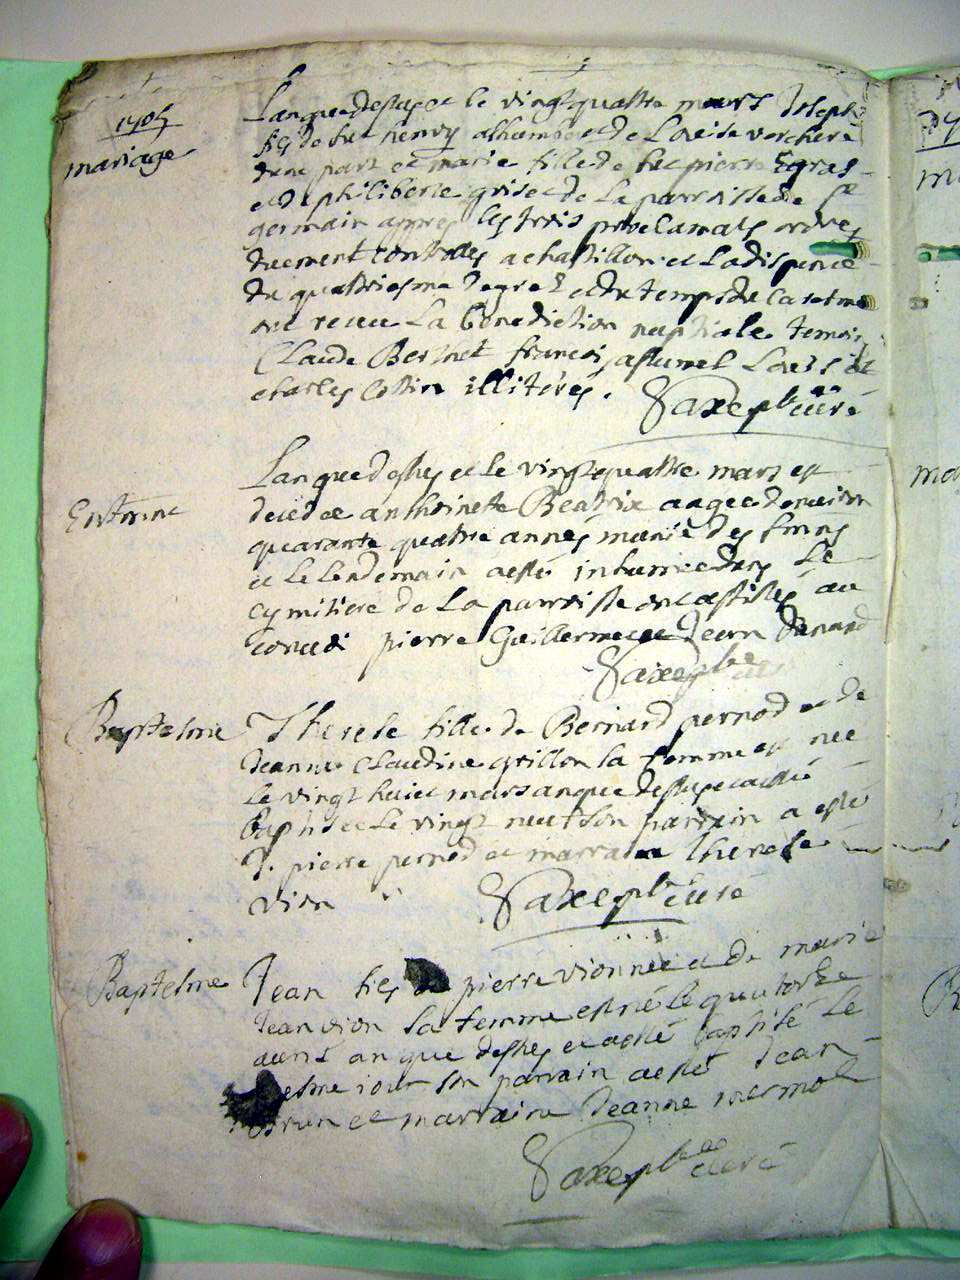 1705
mariage
L'an que dessus et le vingt quattre mars Joseph
fis de feu henry alhumbert et de Louise verchere
d'une part et marie fille de feu pierre gras
et de philiberte grise de La parroisse de St
germain appres les trois proclamats ordres
duement controllés a chastillon et La dispence
du quattriesme degrez et du temps du caresme
ont receu La benediction nuptiale temoin
Claude francois Louis et
charles Cottin illiterés. Saxe pbre curé
Enterme
L'an que dessus et le vingt quattre mars est
decedee anthoinette Beatrix aagee d'environ
quarante quattre années munie des
et le lendemain a esté inhumee dans Le
cymitiere de La parroisse ont assistés au
convoi pierre Guillerme et Jean
Saxe pbre
Baptesme
Therese fille de Bernard pernod et de
Jeanne Claudine grillon sa femme est nee
Le vingt huict mars an que dessus et a esté
Baptisee Le vingt neuf son parrain a esté
J. pierre pernod et marraine therese
vion
Saxe pbre curé
Baptesme
Jean fis de pierre vionnet et de marie
Jean vion sa femme est né le quatorze
avril an que dessus et a esté baptisé Le
mesme iour son parrain a esté Jean
brun et marraine Jeanne mermet
Saxe pbre curé